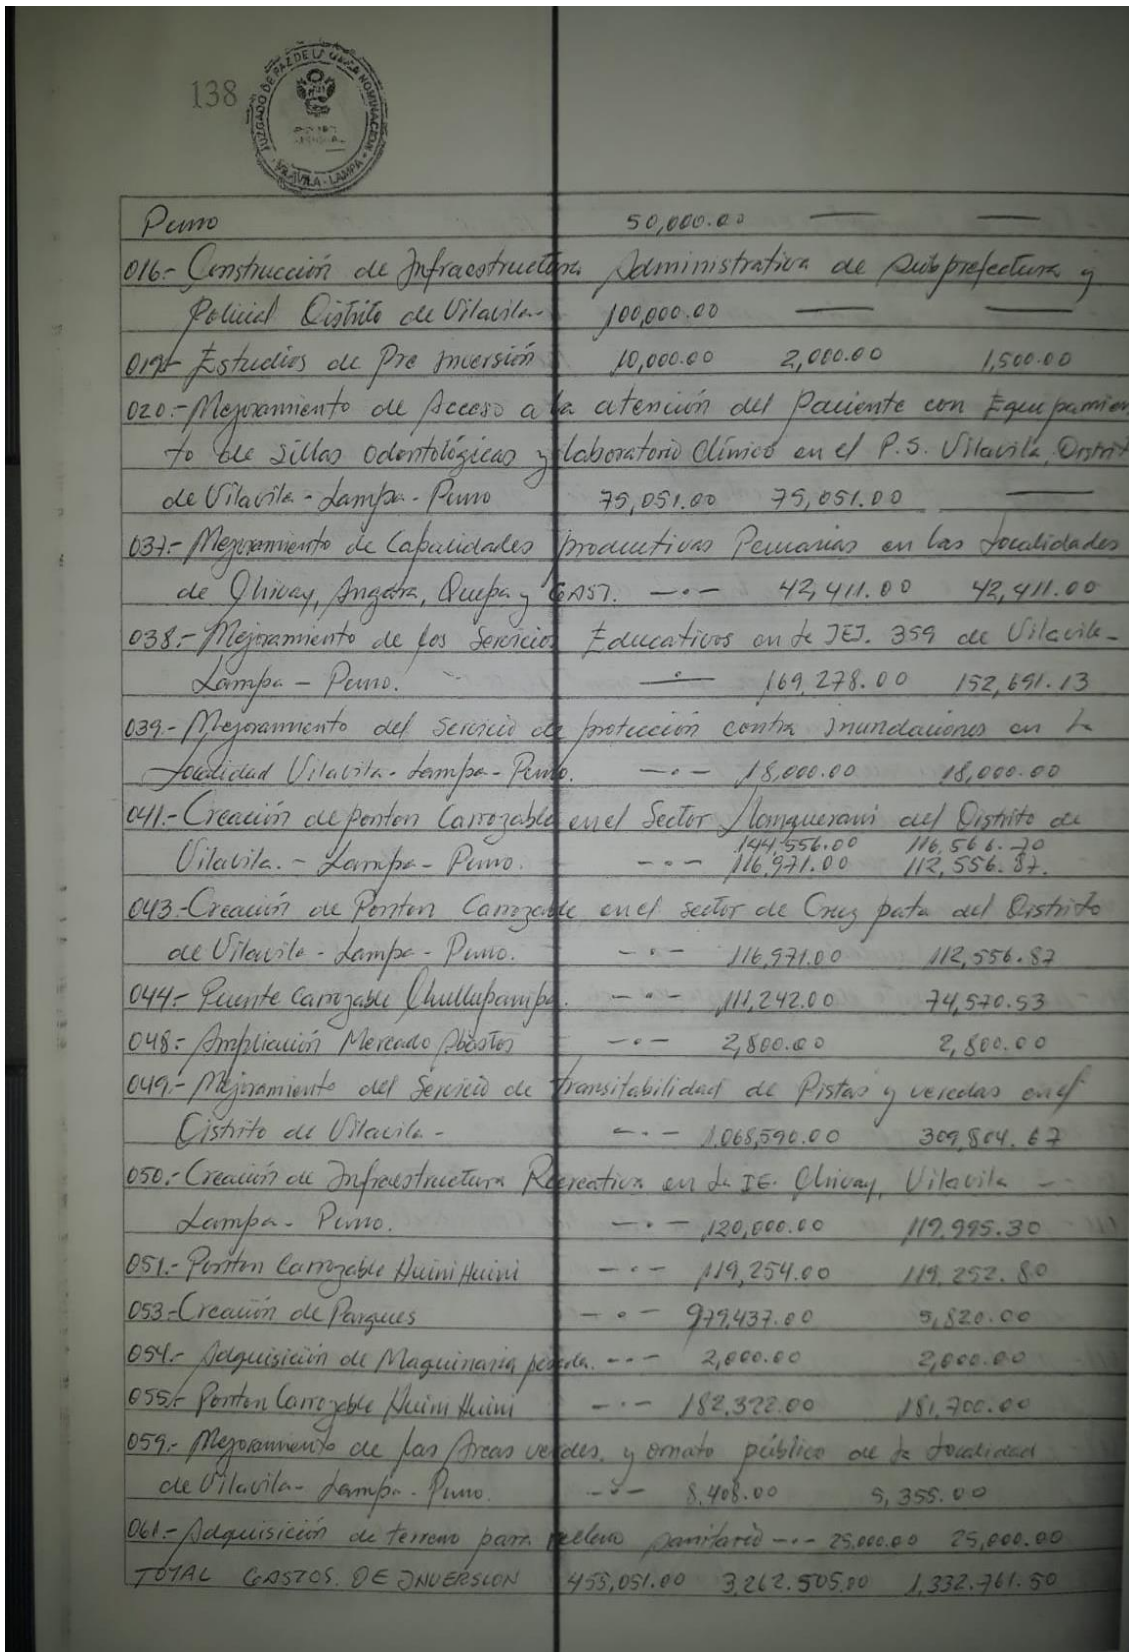 138
JUZGADO DE PAZ DE LA UNICA NOMINACION
VILAVILA - LAMPA
Puno 50,000.00 — —
016.- Construcción de Infraestructura Administrativa de Subprefectura y
Policial Distrito de Vilavila- 100,000.00 — —
017.- Estudios de Pre Inversión 10,000.00 2,000.00 1,500.00
020.- Mejoramiento de Acceso a la atención del Paciente con Equipamien
to de Sillas Odontológicas y laboratorio Clínico en el P.S. Vilavila, Distrit
de Vilavila - Lampa - Puno 75,051.00 75,051.00 —
037.- Mejoramiento de Capacidades productivas Pecuarias en las Localidades
de Chivay, Angara, Quepa y —.— 42,411.00 42,411.00
038.- Mejoramiento de los Servicios Educativos en la IEI. 359 de Vilavila-
Lampa - Puno. —.— 169,278.00 152,691.13
039.- Mejoramiento del Servicio de protección contra Inundaciones en la
Localidad Vilavila - Lampa - Puno. —.— 18,000.00 18,000.00
041.- Creación de ponton Carrozable en el Sector del Distrito de
144,556.00 116,566.70
Vilavila. - Lampa - Puno. —.— 116,971.00 112,556.87.
043.- Creación de Ponton Carrozable en el sector de Cruz pata del Distrito
de Vilavila - Lampa - Puno. —.— 116,971.00 112,556.87
044.- Puente Carrozable Chullupampa. —.— 111,242.00 74,570.53
048.- Ampliación Mercado Abastos —.— 2,800.00 2,800.00
049.- Mejoramiento del Servicio de transitabilidad de Pistas y veredas en el
Distrito de Vilavila - —.— 1.068,590.00 309,804.67
050.- Creación de Infraestructura Recreativa en la IE. Chivay, Vilavila -
Lampa - Puno. —.— 120,000.00 119,995.30
051.- Ponton Carrozable Huini Huini —.— 119,254.00 119,252.80
053.- Creación de Parques —.— 979,437.00 5,820.00
054.- Adquisición de Maquinaria pesada. —.— 2,000.00 2,000.00
055.- Ponton Carrozable Huini Huini —.— 182,322.00 181,700.00
059.- Mejoramiento de las Areas verdes, y ornato público de la Localidad
de Vilavila - Lampa - Puno. —.— 8,408.00 5,355.00
061.- Adquisición de terreno para relleno sanitario —.— 25,000.00 25,000.00
TOTAL GASTOS. DE INVERSION 455,051.00 3,262.505,00 1,332.761.50